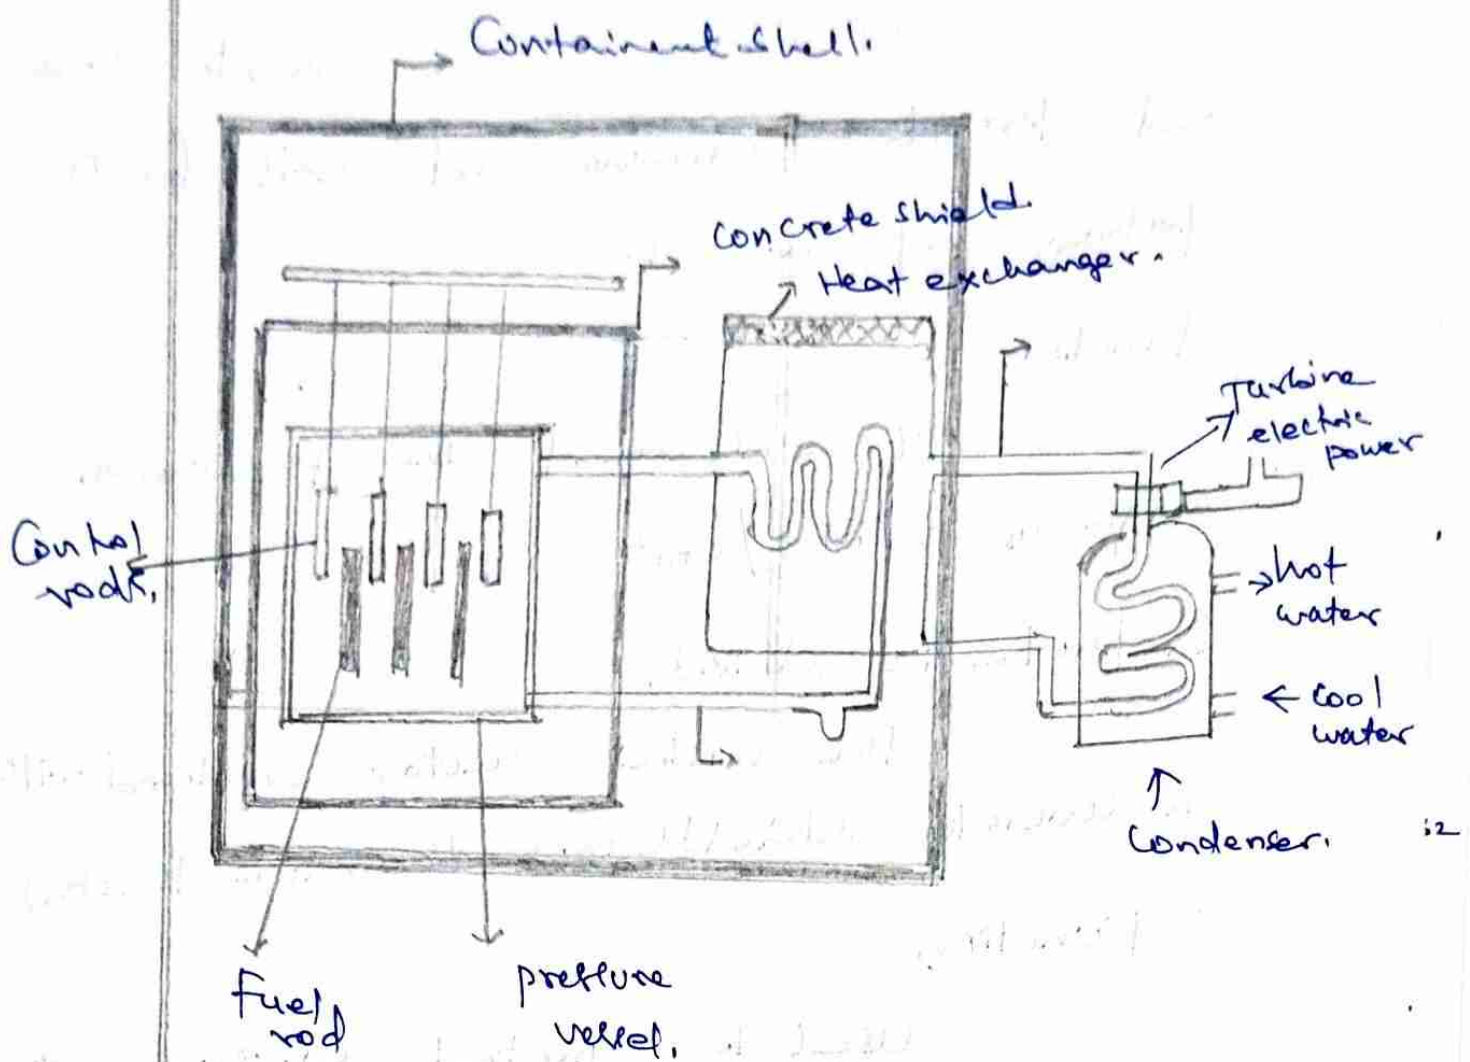 Containent shell.
Concrete shield.
Heat exchanger.
Turbine
electric
power
Control
rods.
hot
water
cool
water
Condenser.
Fuel
rod
pressure
vessel.